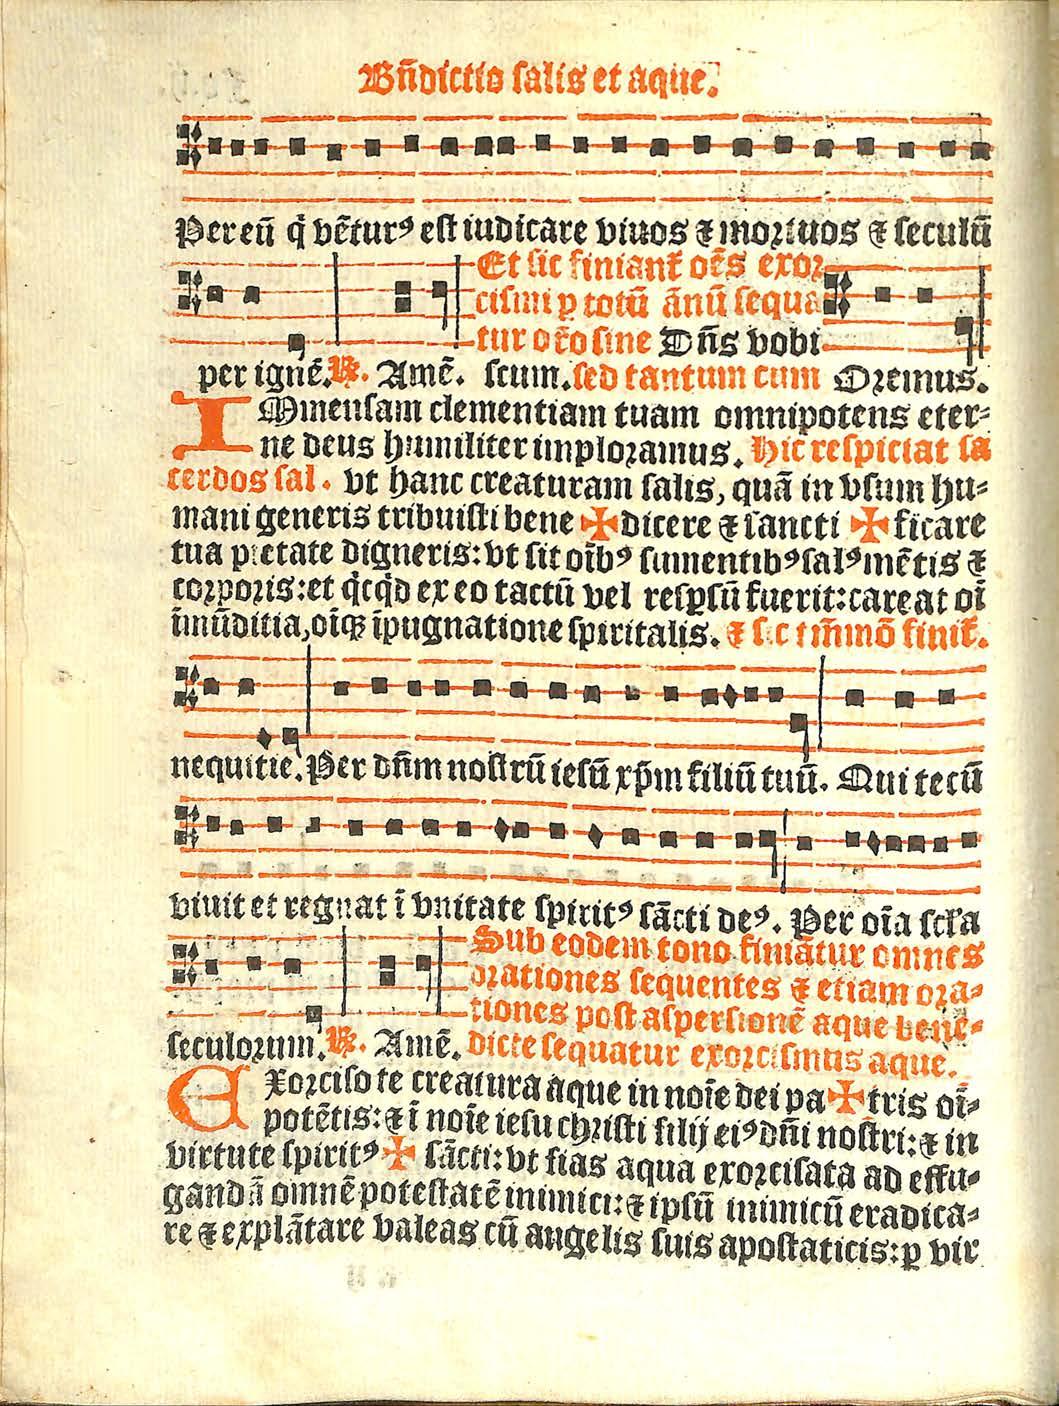 Bn̄dictio salis et aque.
Per eū q̇ vētur⁹ est iudicare viuos ⁊ mortuos ⁊ seculū
Et sic finiant̄ oēs exor
cismi ꝑ totū ānū sequa
tur or̄o sine Dn̄s vobi
per ignē. ℟. Amē. scum. sed tantum cum Oremus.
IMmensam clementiam tuam omnipotens eter⸗
ne deus humiliter imploramus. Hic respiciat sa
cerdos sal. vt hanc creaturam salis, quā in vsum hu⸗
mani generis tribuisti bene ✠ dicere ⁊ sancti ✠ ficare
tua pietate digneris: vt sit oīb⁹ sumentib⁹ sal⁹ mētis ⁊
corporis: et q̇cq̇d ex eo tactū vel resꝑsū fuerit: careat oī
īmūditia, oīqꝫ īpugnatione spiritalis. ⁊ sic im̄mō finit̄.
nequitie. Per dn̄m nostrū iesū xp̄m filiū tuū. Qui tecū
viuit et regnat ī vnitate spirit⁹ sācti de⁹. Per oīa scl̄a
Sub eodem tono finiātur omnes
orationes sequentes ⁊ etiam ora⸗
tiones post aspersionē aque bene⸗
seculorum. ℟. Amē. dicte sequatur exorcismus aque.
EXorciso te creatura aque in noīe dei pa ✠ tris oī⸗
potētis: ⁊ ī noīe iesu christi filij ei⁹ dn̄i nostri: ⁊ in
virtute spirit⁹ ✠ sācti: vt fias aqua exorcisata ad effu⸗
gandā omnē potestatē inimici: ⁊ ipsū inimicū eradica⸗
re ⁊ explātare valeas cū angelis suis apostaticis: ꝑ vir